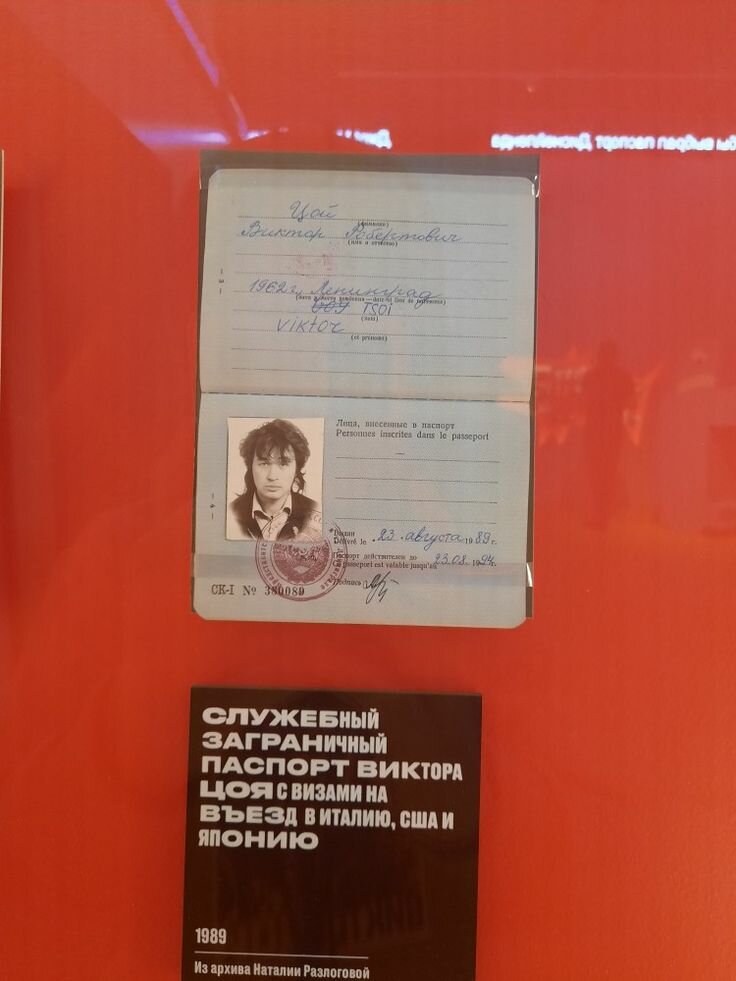 Цой
(фамилия)
Виктор Робертович
(имя и отчество)
1962 г, Ленинград
(дата и место рождения — date et lieu de naissance)
TSOI
(nom)
Viktor
(et prénoms)
— 3 —
Лица, внесенные в паспорт
Personnes inscrites dans le passeport
—
— 4 —
Выдан
Délivré le 23 августа 1989 г.
Паспорт действителен до
Ce passeport est valable jusqu'au 23.08. 1994 г.
Подпись
СК-I № 380089
СЛУЖЕБНЫЙ
ЗАГРАНИЧНЫЙ
ПАСПОРТ ВИКТОРА
ЦОЯ С ВИЗАМИ НА
ВЪЕЗД В ИТАЛИЮ, США И
ЯПОНИЮ
1989
Из архива Наталии Разлоговой